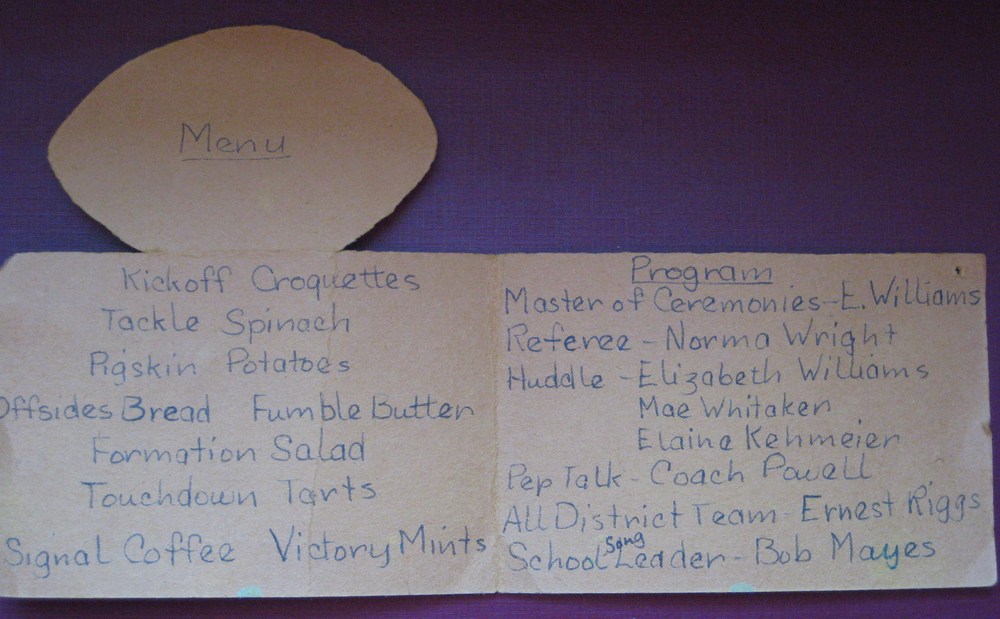 Menu
Kickoff Croquettes
Tackle Spinach
Pigskin Potatoes
Offsides Bread Fumble Butter
Formation Salad
Touchdown Tarts
Signal Coffee Victory Mints
Program
Master of Ceremonies - E. Williams
Referee - Norma Wright
Huddle - Elizabeth Williams
Mae Whitaker
Elaine Kehmeier
Pep Talk - Coach Powell
All District Team - Ernest Riggs
School Song Leader - Bob Mayes